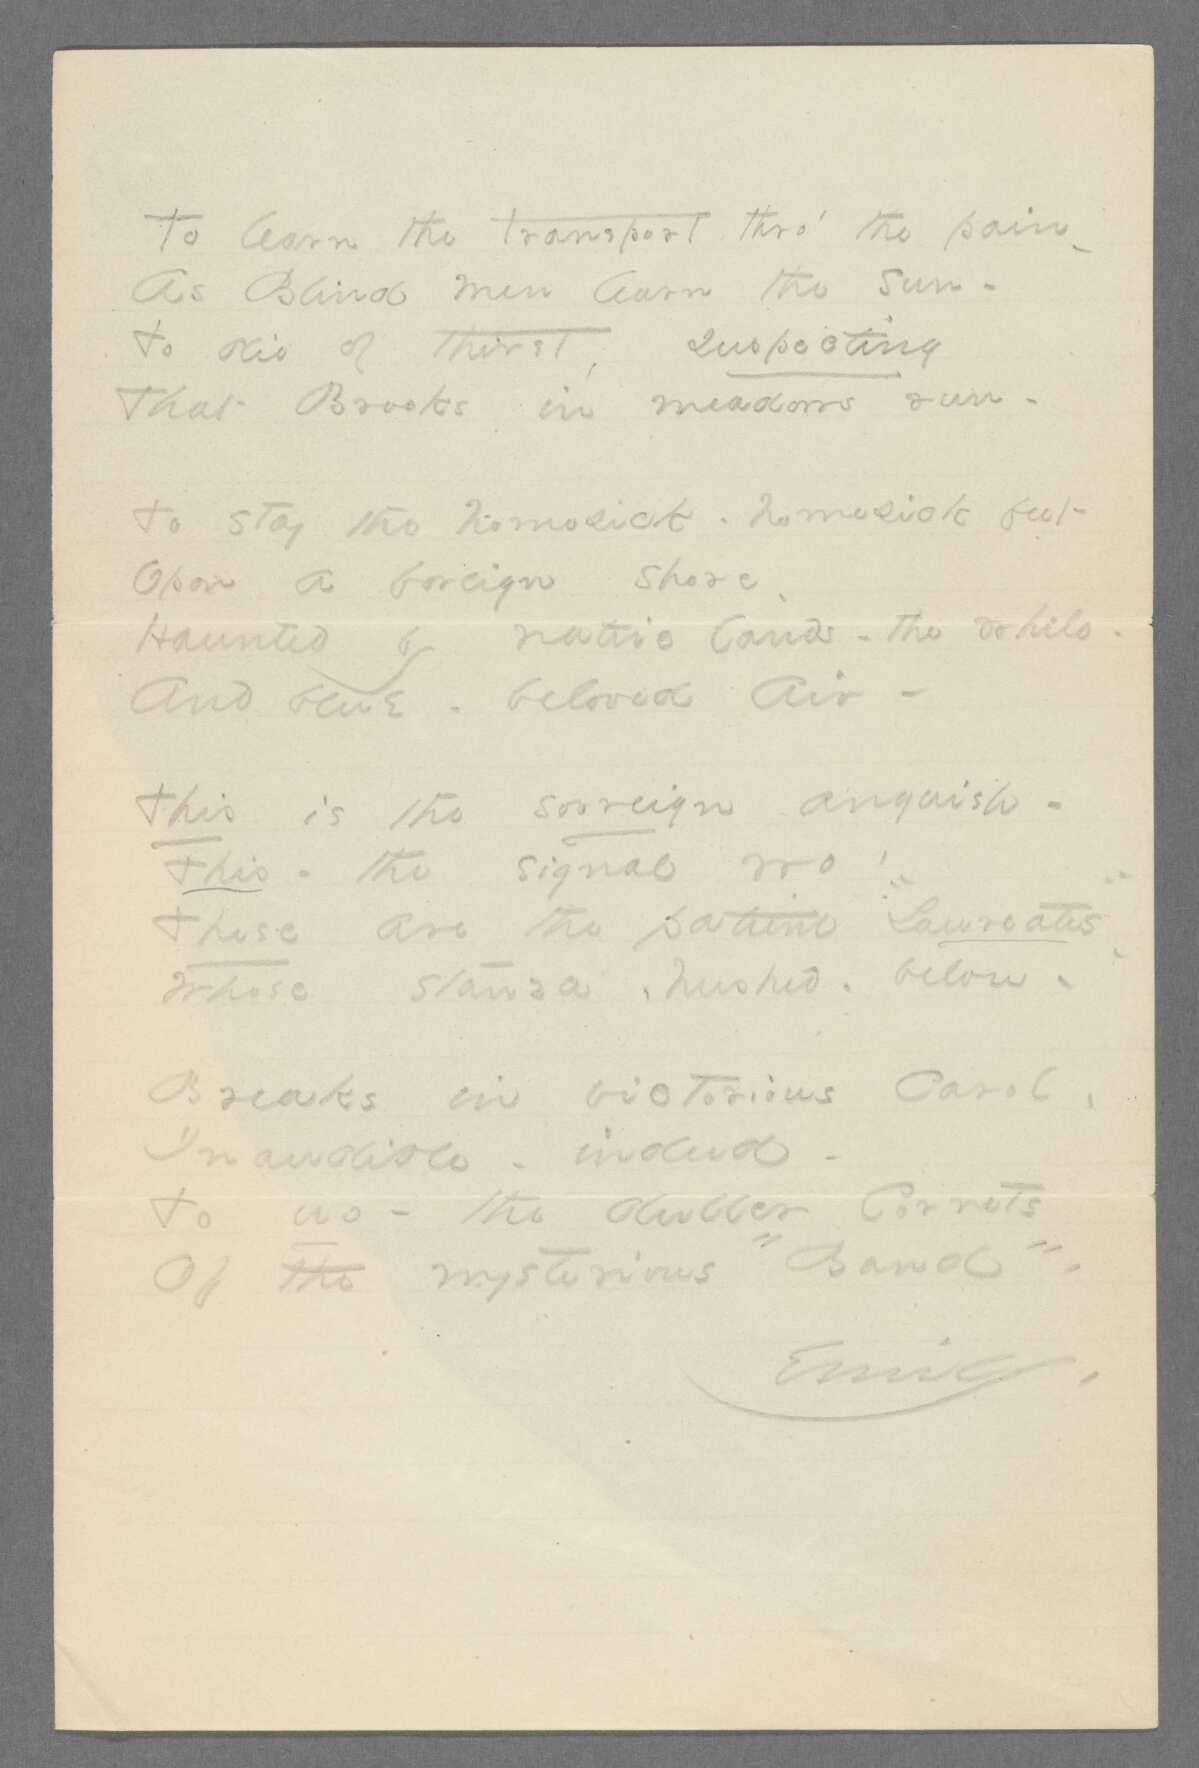 To learn the transport thro' the pain -
As Blind men learn the Sun -
To die of thirst, suspecting
That Brooks in meadows run -
To stay the homesick - homesick feet
Opon a foreign shore,
Haunted by native lands - the while -
And blue - beloved Air -
This is the sovreign anguish -
This - the signal wo!
These are the patient "Laureates"
Whose stanza, hushed - below -
Breaks in victorious Carol,
Inaudible - indeed -
To us - the duller Cornets
Of the mysterious "Band" -
Emily.